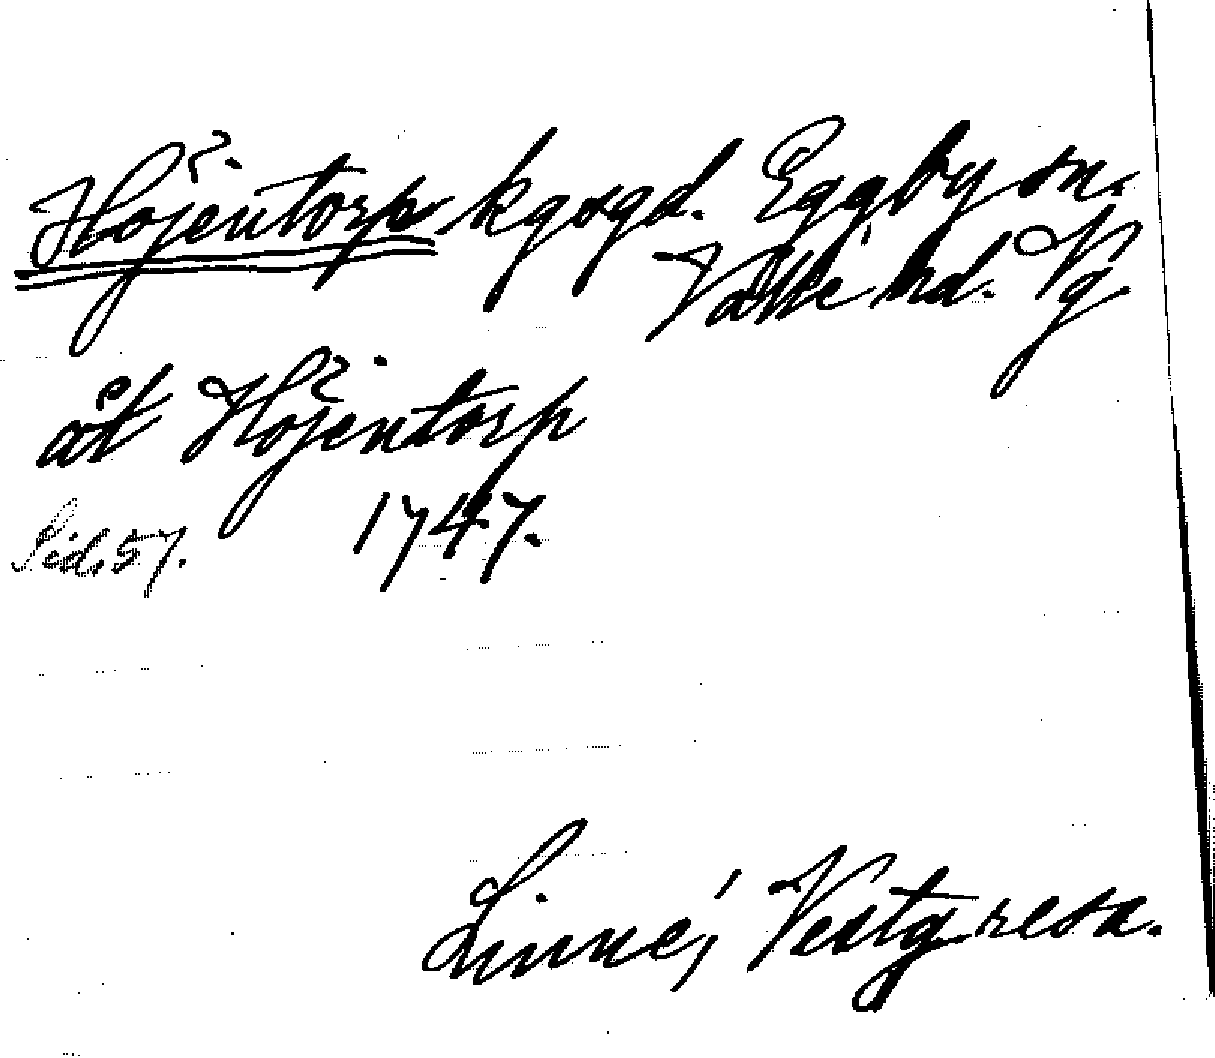 Höjentorp kgsgd. Eggby sn.
Valle hd. Vg
åt Höjentorp
Sid. 57. 1747.
Linné, Vestg. resa.